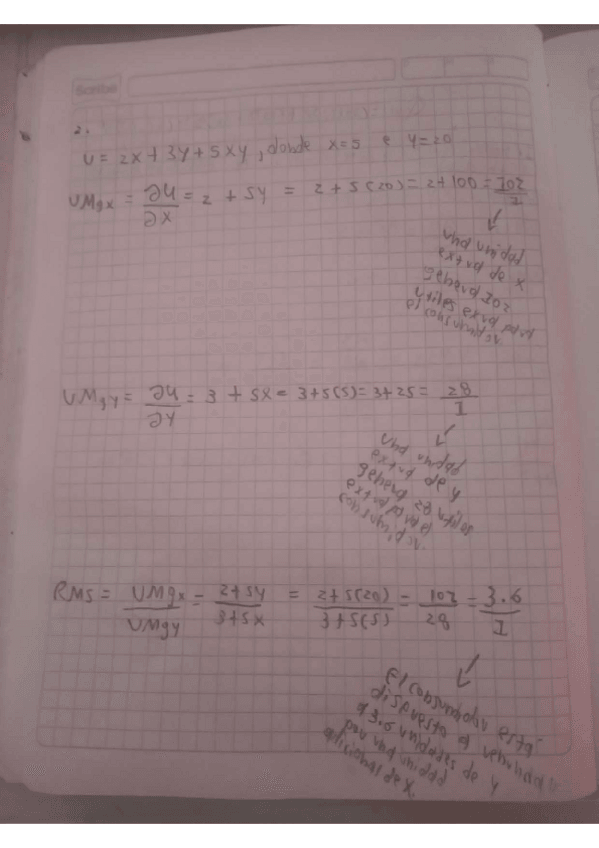 Scribe
2.
U = 2x + 3y + 5xy, donde x=5 e y=20
UMgx = ∂u/∂x = 2 + 5y = 2 + 5(20) = 2 + 100 = 102/1
una unidad
extra de x
genera 102
utiles extra para
el consumidor.
UMgy = ∂u/∂y = 3 + 5x = 3+5(5) = 3+25 = 28/1
una unidad
extra de y
genera 28 utiles
extra para el
consumidor.
RMS = UMgx/UMgy = 2+5y/3+5x = 2+5(20)/3+5(5) = 102/28 = 3.6/1
El consumidor esta
dispuesto a renunciar
a 3.6 unidades de y
por una unidad
adicional de x.